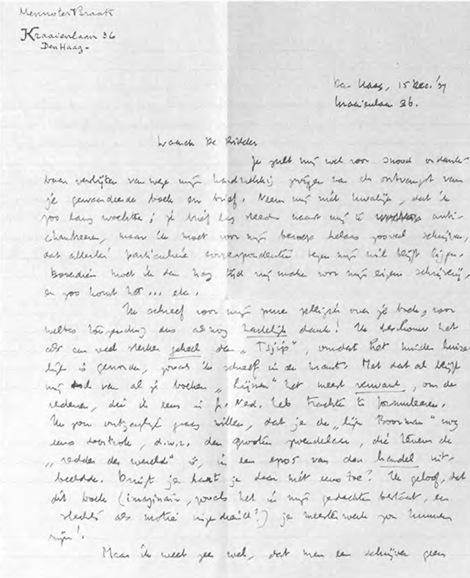 Menno ter Braak
Kraaienlaan 36
Den Haag.
Den Haag, 15 Dec. '37
Kraaienlaan 36.
Waarde De Ridder
Je zult mij wel voor snood ondank-
baar verslijten van wege mijn hardnekkig zwijgen na de ontvangst van
je gewaardeerde boek en brief. Neem mij niet kwalijk, dat ik
zoo lang wachtte; je brief lag steeds naast mij te anti-
chambreeren, maar ik moet voor mijn beroep helaas zooveel schrijven,
dat allerlei particuliere correspondentie tegen mijn wil blijft liggen.
Bovendien moet ik den nog tijd vrij maken voor mijn eigen schrijverij,
en zoo komt het ... etc.
Ik schreef voor mijn over je boek, voor
welks toezending ons alsnog hartelijk dank! Ik beschouw het
als een veel sterker geheel dan „Tsjip", omdat het minder huise-
lijk is geworden, zooals ik schreef in de krant. Met dat al blijft
mij van al je boeken „Lijmen" het meest verwant, om de
redenen, die ik eens in Gr. Ned. heb trachten te formuleeren.
Ik zou ontzaglijk graag willen, dat je de „lijn Boorman" nog
eens doortrok, d.w.z. den grooten zwendelaar, die tevens de
„redder der wereld" is, in een epos van den handel uit-
beeldde. Krijgt je kaart je daar niet eens toe? Ik geloof, dat
dit boek (imaginair, zooals het in mijn gedachten bestaat, en
slechts als motief ) je meesterwerk zou kunnen
zijn!
Maar ik weet zeer wel, dat men een schrijver geen